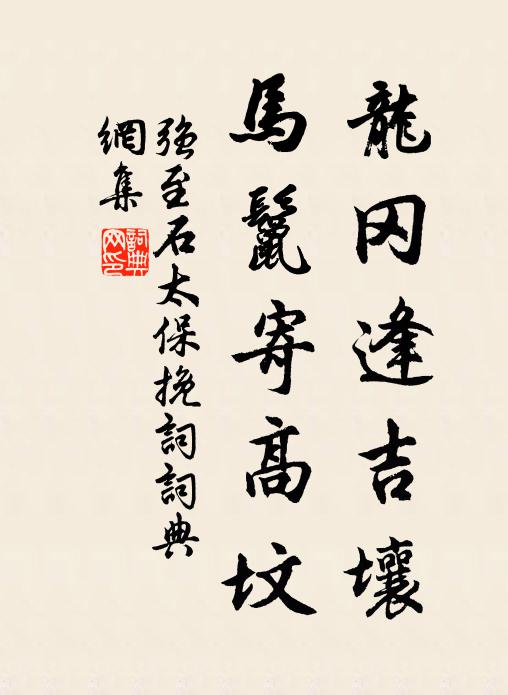 龍冈逢吉壤
馬鬣寄高坟
強至石太保挽詞詞典
網集
詞典
网印